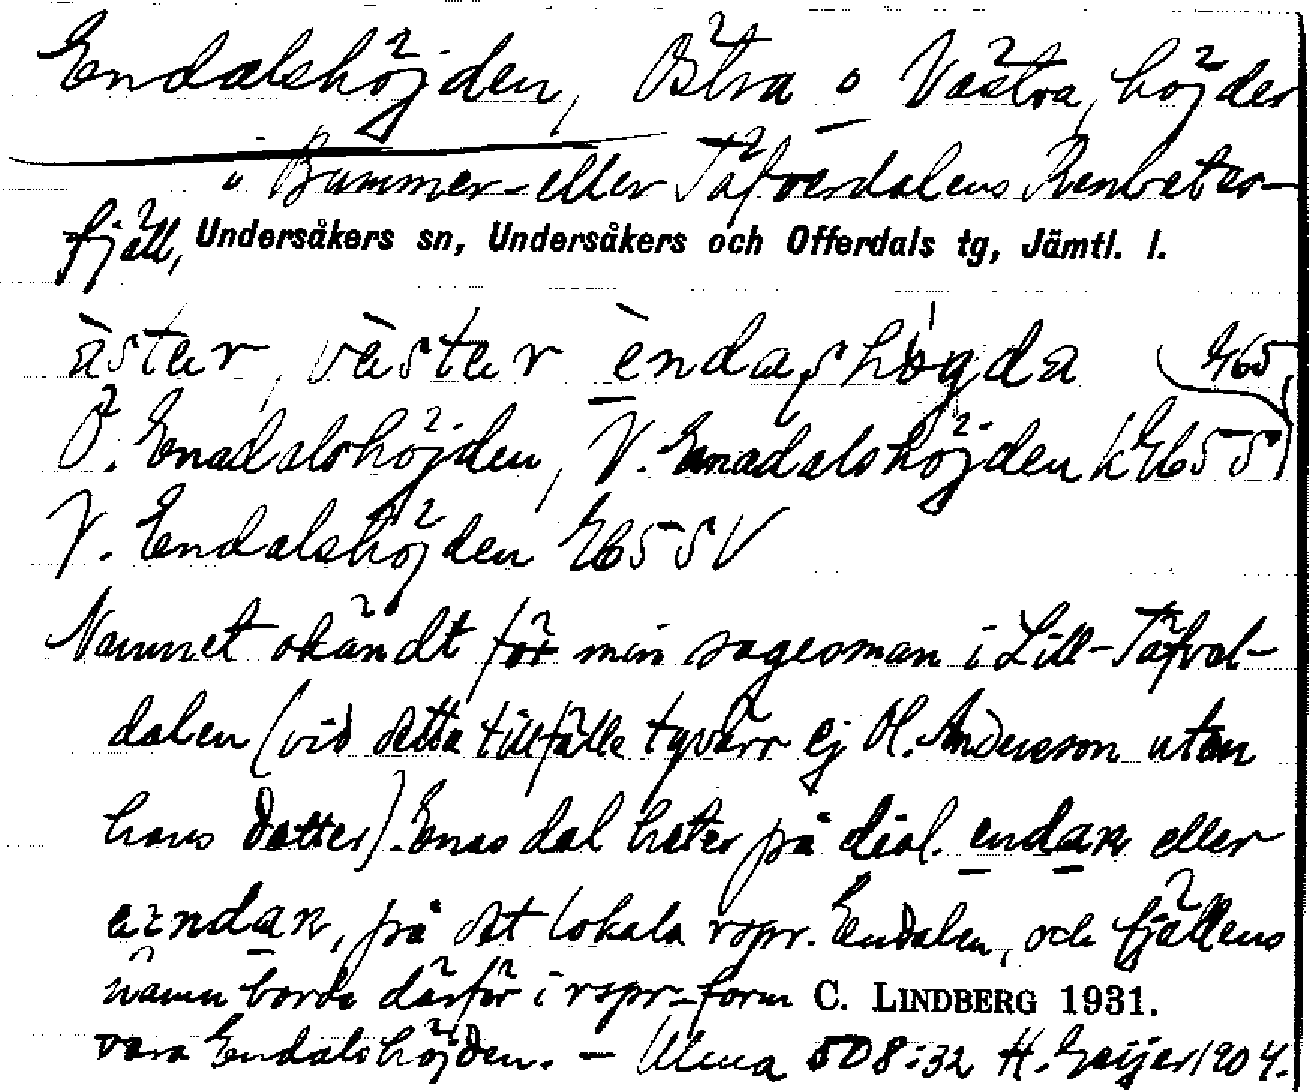 Endalshöjden, Östra o Västra, höjder
i Bummer- eller Täfverdalens Renbetes-
fjäll, Undersåkers sn, Undersåkers och Offerdals tg, Jämtl. l.
àstar, vèstar èndaʂhøgda G65
Ö. Enadalshöjden, V. Enadalshöjden k G65 S
V. Endalshöjden G65 SV
Namnet okändt för min sagesman i Lill-Täfvel-
dalen (vid detta tillfälle tyvärr ej Ol. Andersson utan
hans dotter). Enas dal heter på dial. endaɴ eller
eɪndaɴ, på det lokala rspr. Endalen, och fjällens
namn borde därför i rspr-form C. LINDBERG 1931.
vara Endalshöjden. — Ulma 508:32 H. Geijer 1904.